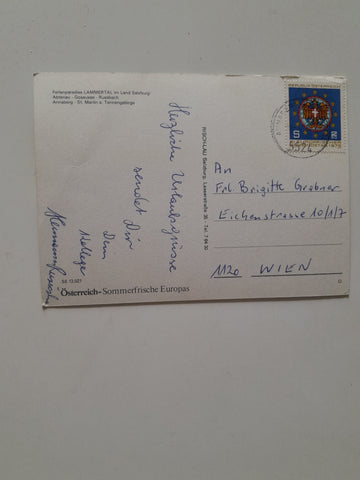 Ferienparadies LAMMERTAL im Land Salzburg:
Abtenau - Gosausee - Russbach
Annaberg - St. Martin a. Tennengebirge
Herzliche Urlaubsgrüsse
sendet Dir
Dein
Kollege
SG 12.021
Österreich-Sommerfrische Europas
RISCHLAU Salzburg, Lasserstraße 35 - Tel. 7 64 30
REPUBLIK ÖSTERREICH
S
5524
An
Frl. Brigitte Grabner
Eichenstrasse 10/1/7
1120 WIEN